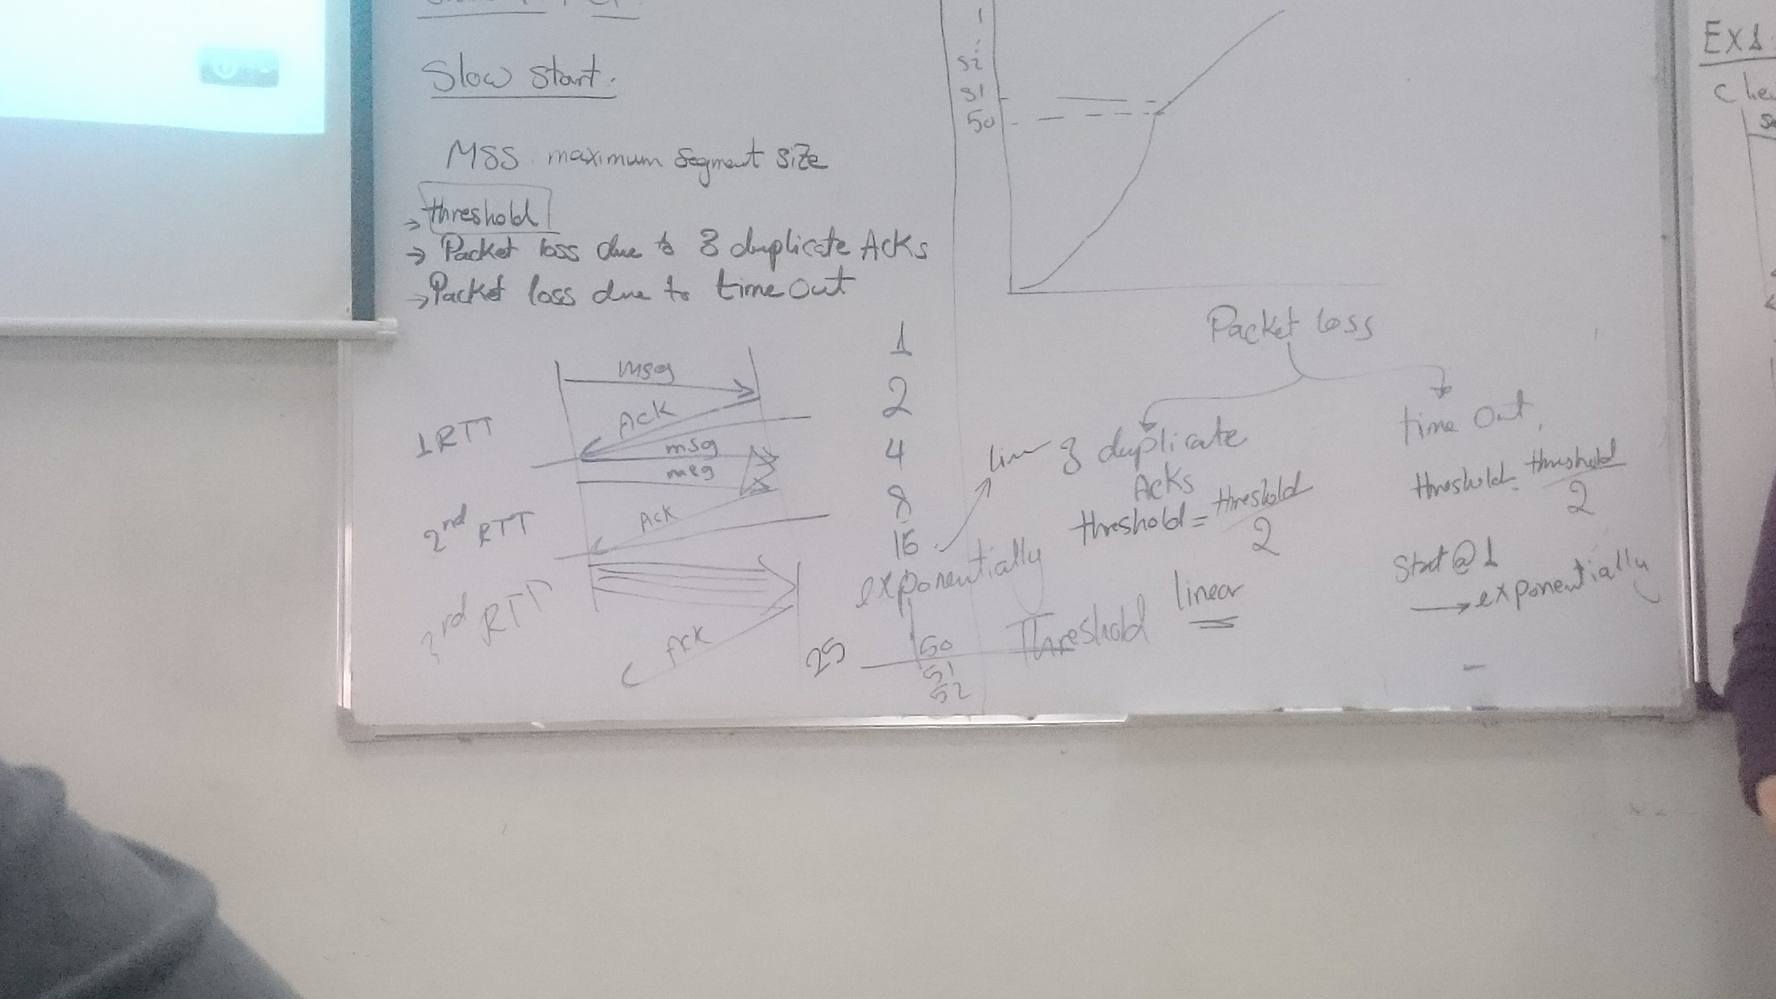 Slow Start.
MSS maximum Segment size
→ threshold
→ Packet loss due to 3 duplicate Acks
→ Packet loss due to time out
1RTT
msg
Ack
msg
msg
2nd RTT
Ack
3rd RTT
Ack
1
2
4
8
16
exponentially
25
50
51
52
Threshold
52
51
50
Packet loss
lin
3 duplicate
Acks
threshold = threshold
2
linear
time out,
threshold = threshold
2
Start @ 1
→ exponentially
Ex1